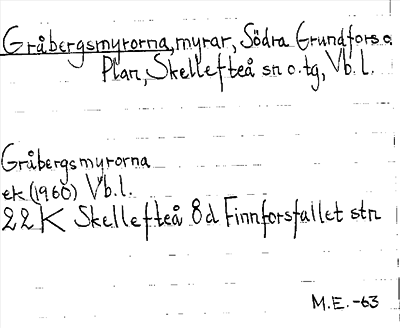 Gråbergsmyrorna, myrar, Södra Grundfors o.
Plan, Skellefteå sn o. tg, Vb. l.
Gråbergsmyrorna
ek (1960) Vb. l.
22 K Skellefteå 8d Finnforsfallet stn
M.E. -63